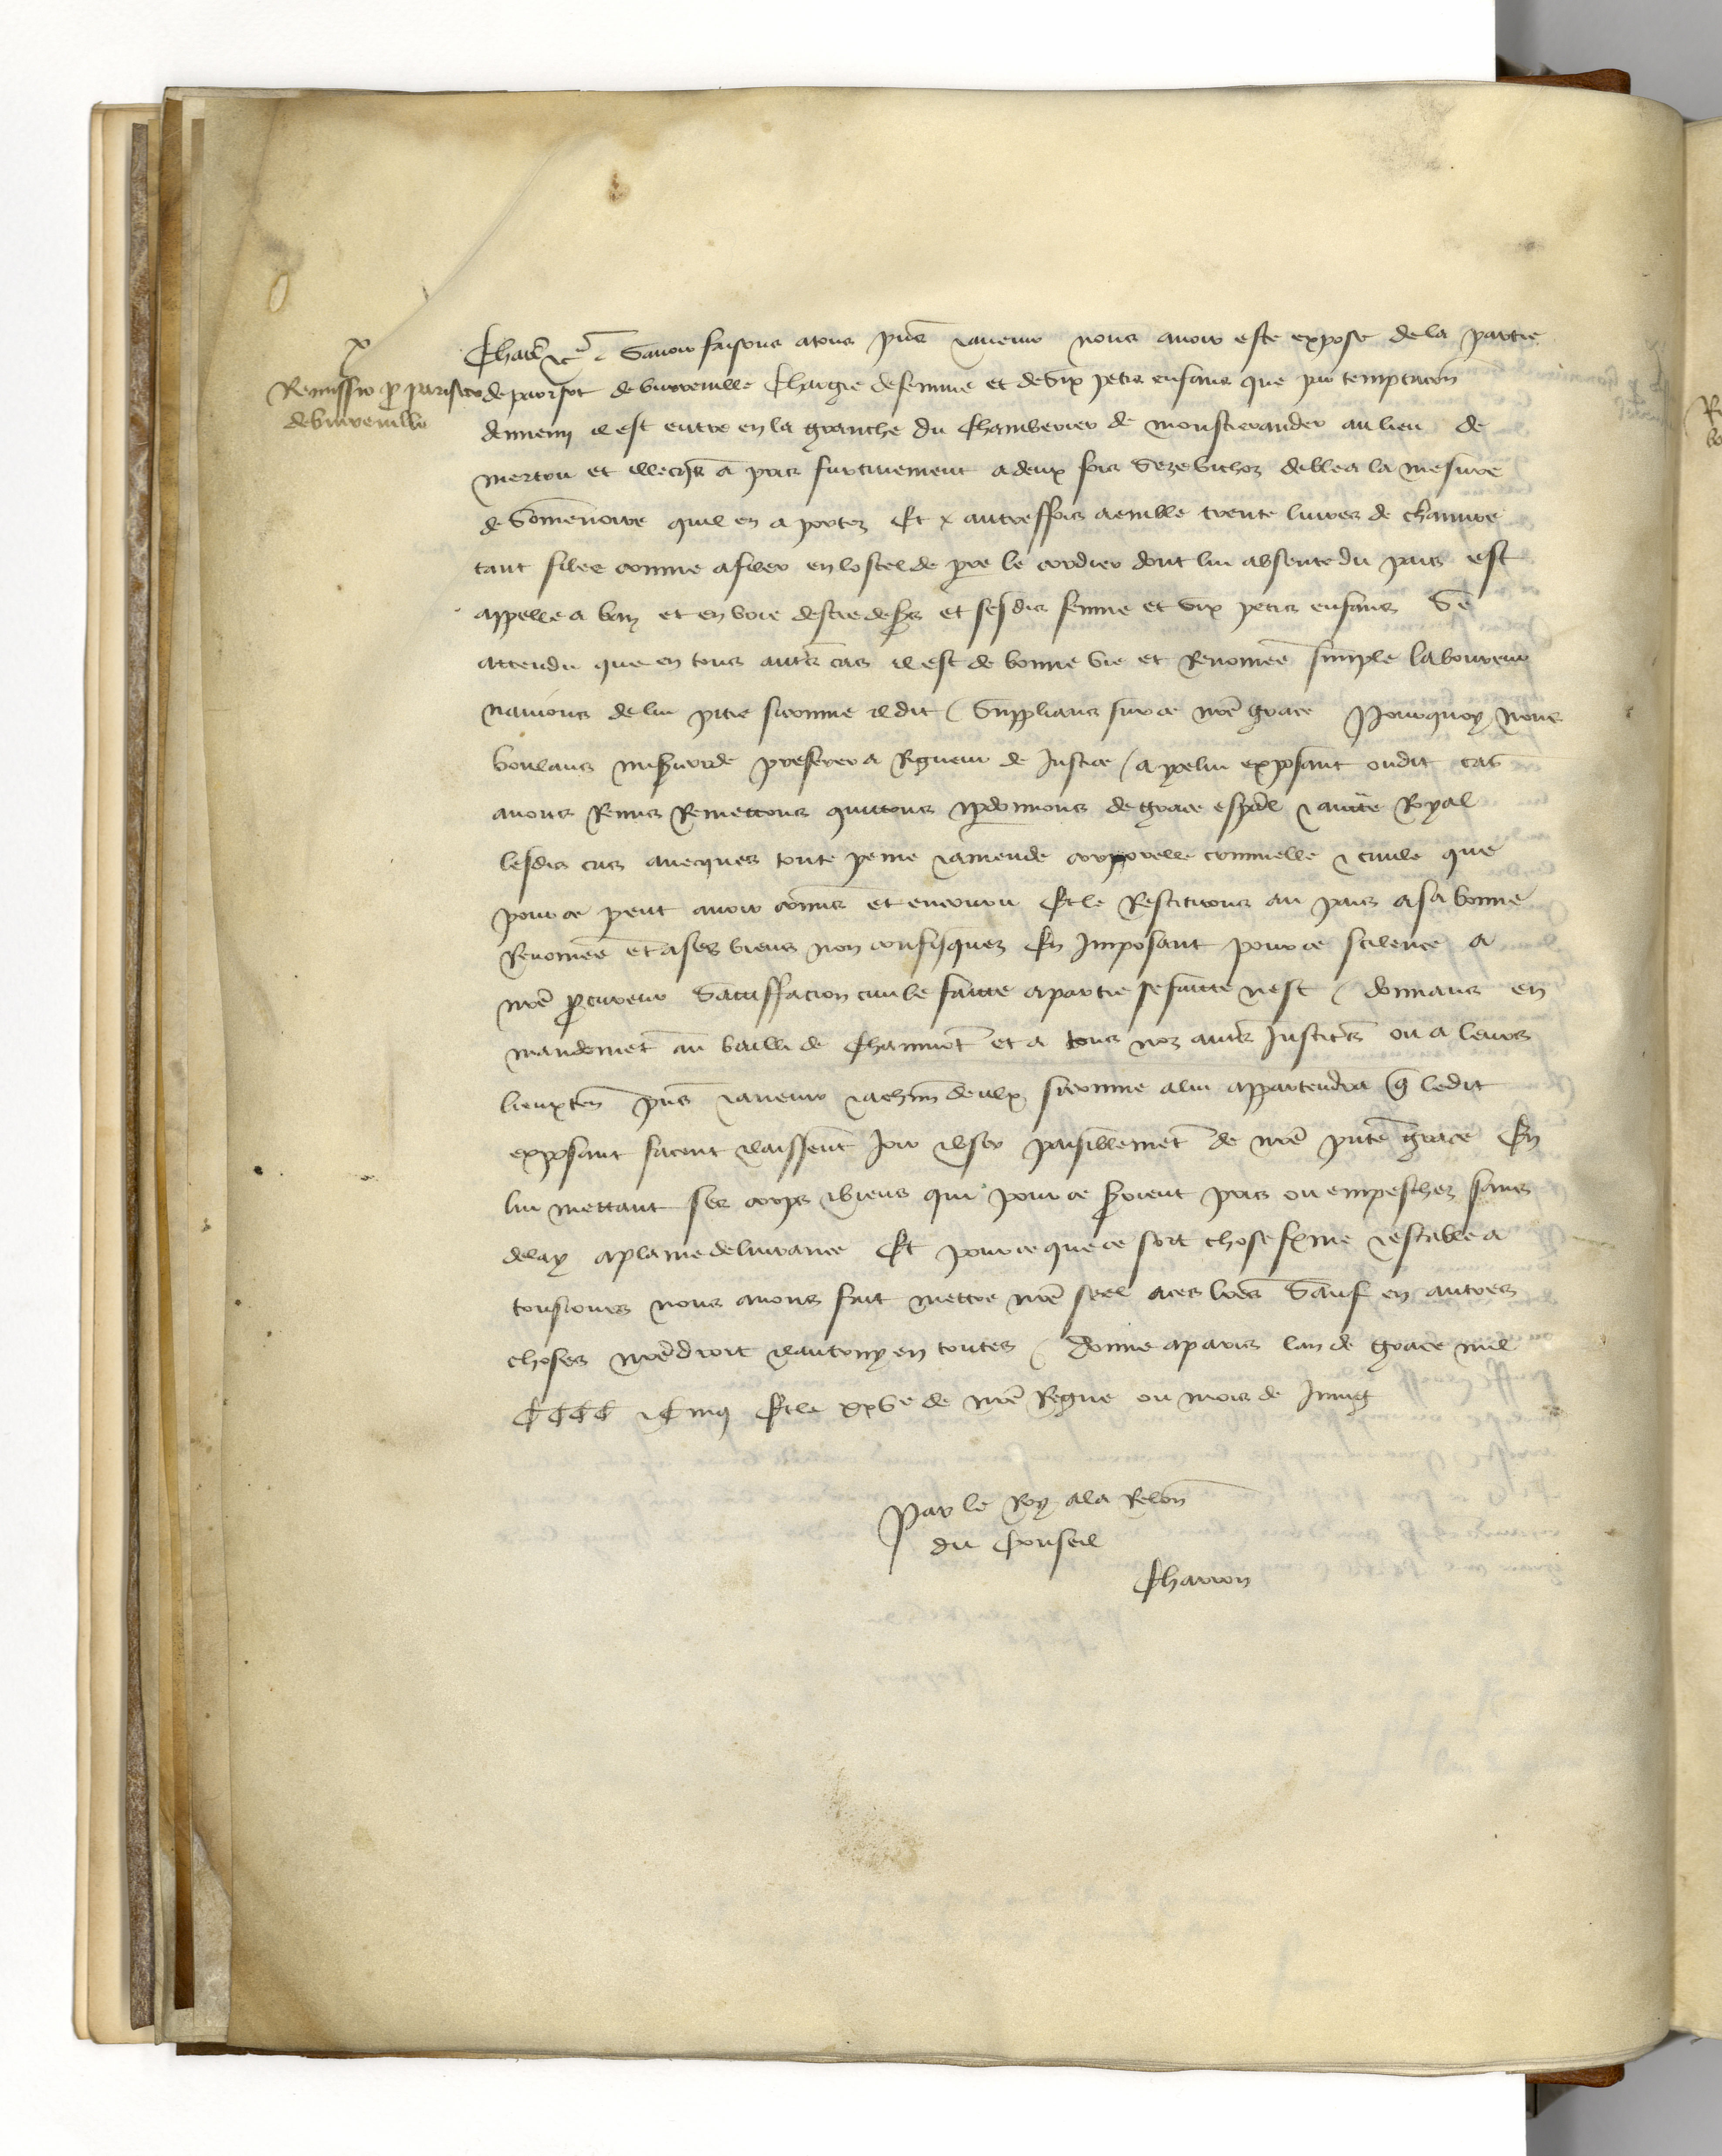 x
Remissio p parisoto
de buxereuilla
Charl &c Sauoir faisons a tous pns & auenir nous auoir este expose de la partie
de parisot de buxereuille Chargie de femme et de six petis enfans que par temptacion
dennemi il est entre en la granche du Chamberier de monstierander au lieu de
mertru et illecqs a pris furtiuement a deux fois seze bichoz de ble a la mesure
de Sommeuoire quil en a portez Et x autreffois a emble trente liures de chanure
tant filee comme a filer en lostel de pre le cordier dont lui absente du pais est
appelle a ban et en voie destre desers et ses dis femme et six petis enfans Se
attendu que en tous autrs cas il est de bonne vie et Renomee simple laboureur
nauions de lui pitie si comme il dit / Supplians sur ce nre grace Pourquoy Nous
voulans misericorde preferer a Rigueur de Justice / a ycelui exposant oudit cas
auons Remis Remettons quittons & pdonnons de grace espal & aucte Royal
lesdis cas auecques toute peine & amende corporelle criminelle & ciuile que
pour ce peut auoir commis et encouru Et le Restituons au pais a sa bonne
Renomee et a ses biens non confisquez En Imposant pour ce scilence a
nre pcureur Satisffacion ciuile faitte a partie se faitte nest / donnans en
mandemet au bailli de Chaumot et a tous noz autrs Justicirs ou a leurs
lieuxten pns & auenir & a chun deulx si comme a lui appartendra q ledit
exposant facent & laissent Joir & vser paisiblemet de nre pnte grace En
lui mettant ses corps & biens qui pour ce seroient pris ou empeschez sans
delay a plaine deliurance Et pour ce que ce soit chose ferme & estable a
tousiours nous auons fait mettre nre seel a ces lres Sauf en autres
choses nre droit & lautruy en toutes / Donne a paris lan de grace mil
CCCC & Cinq Et le xxve de nre Regne ou mois de Juing
Par le Roy a la Relon
du Conseil
Charron